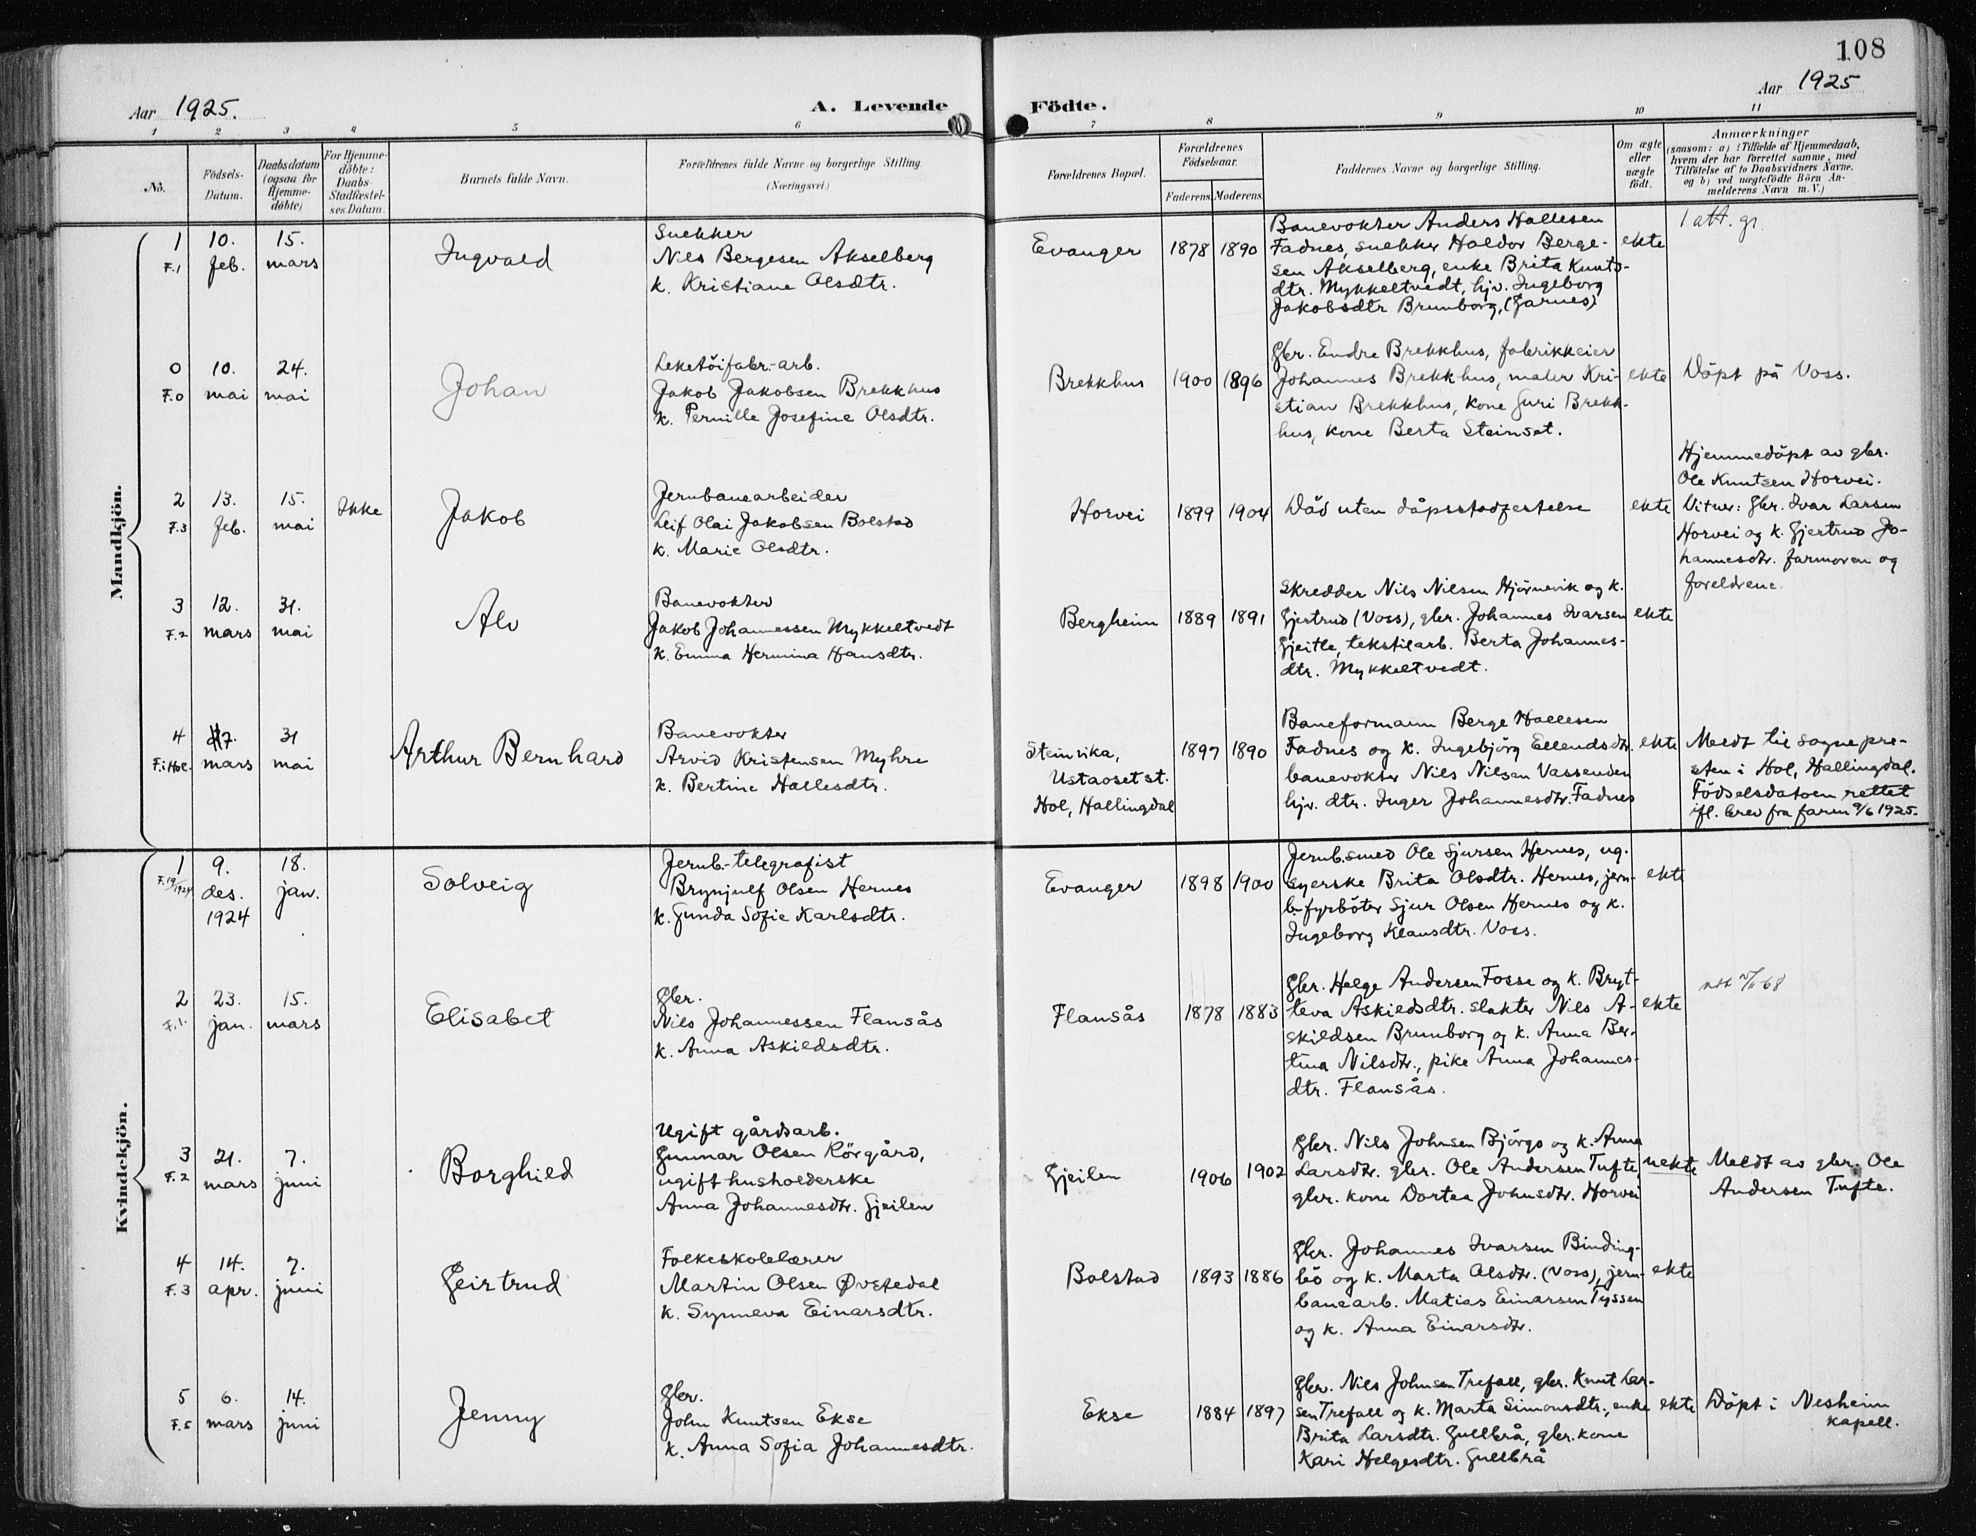 108
Aar 1925.
A. Levende Födte.
Aar 1925
1 2 3 4 5 6 7 8 9 10 11
No.
Födsels-
Datum.
Daabsdatum
(ogsaa for
Hjemme-
döbte)
For Hjemme-
döbte:
Daabs-
Stadfæstel-
ses Datum.
Barnets fulde Navn.
Forældrenes fulde Navne og borgerlige Stilling.
(Næringsvei.)
Forældrenes Bopæl.
Forældrenes
Födselsaar.
Faderens Moderens
Faddernes Navne og borgerlige Stilling.
Om ægte
eller
uægte
født.
Anmærkninger
(saasom: a) i Tilfælde af Hjemmedaab,
hvem der har forrettet samme, med
Tilföielse af to Daabsvidners Navne,
og b) ved uægtefödte Börn An-
melderens Navn m. V.)
Mandkjön.
1
F.1
10.
feb.
15.
mars
Ingvald
Snekker
Nils Bergesen Akselberg
k. Kristiane Olsdtr.
Evanger
1878 1890
Banevokter Anders Hallesen
Fadnes, snekker Haldor Berge-
sen Akselberg, enke Brita Knuts-
dtr. Mykkeltvedt, hjv. Ingeborg
Jakobsdtr Brunborg, (Garnes)
ekte
1 att. gr.
0
F.0
10.
mai
24.
mai
Johan
Leketöifabr.-arb.
Jakob Jakobsen Brekkhus
k. Pernille Josefine Olsdtr.
Brekkhus
1900 1896
Gbr. Endre Brekkhus, fabrikkeier
Johannes Brekkhus, maler Kri-
stian Brekkhus, kone Guri Brekk-
hus, kone Berta Steinset.
ekte
Döpt på Voss.
2
F.3
13.
feb.
15.
mai
Ikke
Jakob
Jernbanearbeider
Leif Olai Jakobsen Bolstad
k. Marie Olsdtr.
Horvei
1899 1904
Död uten dåpsstadfestelse
ekte
Hjemmedöpt av gbr.
Ole Knutsen Horvei.
Vitner: Gbr. Ivar Larsen
Horvei og k. Gjertrud Jo-
hannesdtr. farmoren og
foreldrene.
3
F.2
12.
mars
31.
mai
Alv
Banevokter
Jakob Johannessen Mykkeltvedt
k. Emma Hermina Hansdtr.
Bergheim
1889 1891
Skredder Nils Nilsen Hjørnevik og k.
Gjertrud (Voss), gbr. Johannes Ivarsen
Gjeitle, tekstilarb. Berta Johannes-
dtr. Mykkeltvedt.
ekte
4
F. i Hol.
mars
31
mai
Arthur Bernhard
Banevokter
Arvid Kristensen Myhre
k. Bertine Hallesdtr.
Steinvika,
Ustaoset st.
Hol, Hallingdal
1897 1890
Baneformann Berge Hallesen
Fadnes og k. Ingebjörg Ellendsdtr.
banevokter Nils Nilsen Vassenden
hjv. dtr. Inger Johannesdtr. Fadnes
ekte
Meldt til sognepre-
sten i Hol, Hallingdal.
Födselsdatoen rettet
ifl. brev fra faren 9/6 1925.
Kvindekjön.
1
F.19/1924
9.
des.
1924
18.
jan.
Solveig
Jernb.-telegrafist
Brynjulf Olsen Hernes
k. Gunda Sofie Karlsdtr.
Evanger
1898 1900
Jernb.smed Ole Sjursen Hernes, ug.
syerske Brita Olsdtr. Hernes, jern-
b.fyrböter Sjur Olsen Hernes og k.
Ingeborg Klausdtr. Voss.
ekte
2
F.1.
23.
jan.
15.
mars
Elisabet
Gbr.
Nils Johannessen Flansås
k. Anna Askildsdtr.
Flansås
1878 1883
Gbr. Helge Andersen Fosse og k. Bryt-
teva Askildsdtr. slakter Nils A-
skildsen Brunborg og k. Anna Ber-
tina Nilsdtr., pike Anna Johannes-
dtr. Flansås.
ekte
3
F.2
21.
mars
7.
juni
Borghild
Ugift gårdsarb.
Gunnar Olsen Rörgård,
ugift husholderske
Anna Johannesdtr. Gjeilen
Gjeilen
1906 1902
Gbr. Nils Johnsen Björgo og k. Anna
Larsdtr. gbr. Ole Andersen Tufte,
gbr. kone Dortea Johnsdtr. Horvei
uekte
Meldt av gbr. Ole
Andersen Tufte.
4
F.3
14.
apr.
7.
juni
Geirtrud
Folkeskolelærer
Martin Olsen Øvstedal
k. Synneva Einarsdtr.
Bolstad
1893 1886
Gbr. Johannes Ivarsen Binding-
bö og k. Marta Olsdtr. (Voss), jern-
banearb. Matias Einarsen Tyssen
og k. Anna Einarsdtr.
ekte
5
F.5
6.
mars
14.
juni
Jenny
Gbr.
John Knutsen Ekse
k. Anna Sofia Johannesdtr.
Ekse
1884 1897
Gbr. Nils Johnsen Trefall, gbr. Knut Lar-
sen Trefall og k. Marta Simonsdtr., enke
Brita Larsdtr. Gullbrå, gbr. kone
Kari Helgesdtr. Gullbrå
ekte
Döpt i Nesheim
kapell.